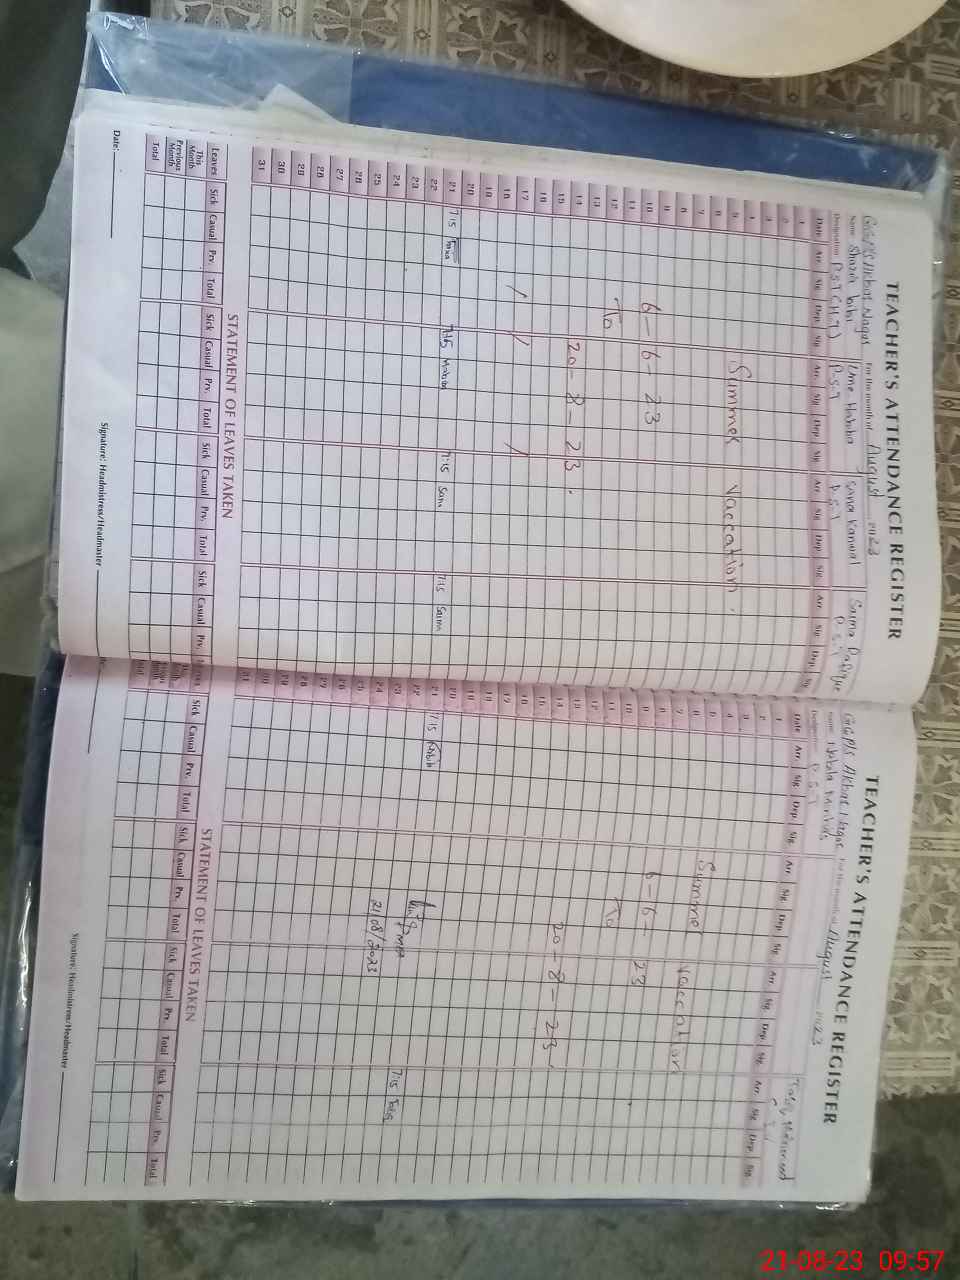 TEACHER'S ATTENDANCE REGISTER
GGP/S Akbar Nagar For the month of August 2023
Name Shazia bibi Ume Habiba Sana Kanwal Saima Rafique
Designation P.S.T (H.T) P.S.T P.S.T P.S.T
Date Arr. Sig. Dep. Sig. Arr. Sig. Dep. Sig. Arr. Sig. Dep. Sig. Arr. Sig. Dep. Sig.
1
2
3
4
5 Summer vaccation.
6
7
8
9
10 6-6-23
11
12 To
13
14 20-8-23.
15
16
17
18
19
20
21 7:15 7:15 Habiba 7:15 Sana 7:15 Saima
22
23
24
25
26
27
28
29
30
31
STATEMENT OF LEAVES TAKEN
Leaves Sick Casual Prv. Total Sick Casual Prv. Total Sick Casual Prv. Total Sick Casual Prv.
This Month
Previous Month
Total
Date: Signature: Headmistress/Headmaster
TEACHER'S ATTENDANCE REGISTER
GGP/S Akbar Nagar For the month of August 2023
Name
Designation P.S.T
Date Arr. Sig. Dep. Sig. Arr. Sig. Dep. Sig. Arr. Sig. Dep. Sig. Arr. Sig. Dep. Sig.
1
2
3
4
5
6 Summer vaccation
7
8
9 6-6-23
10
11 To
12
13
14 20-8-23.
15
16
17
18
19
20
21 7:15
22
23 7:15
24 21/08/2023
25
26
27
28
29
30
31
STATEMENT OF LEAVES TAKEN
Sick Casual Prv. Total Sick Casual Prv. Total Sick Casual Prv. Total Sick Casual Prv. Total
Signature: Headmistress/Headmaster
21-08-23 09:57